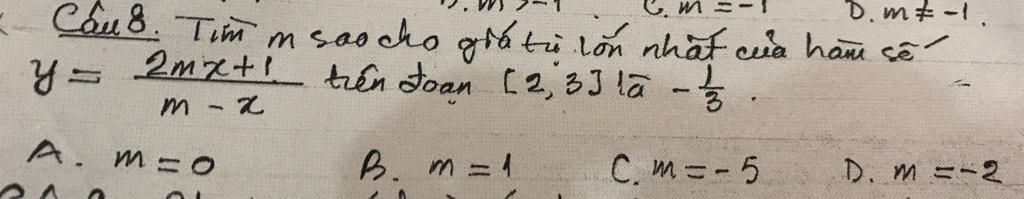 C. m = -1 D. m ≠ -1.
Câu 8. Tìm m sao cho giá trị lớn nhất của hàm số
y = \frac{2mx+1}{m-x} trên đoạn [2,3] là -\frac{1}{3}.
A. m = 0 B. m = 1 C. m = -5 D. m = -2